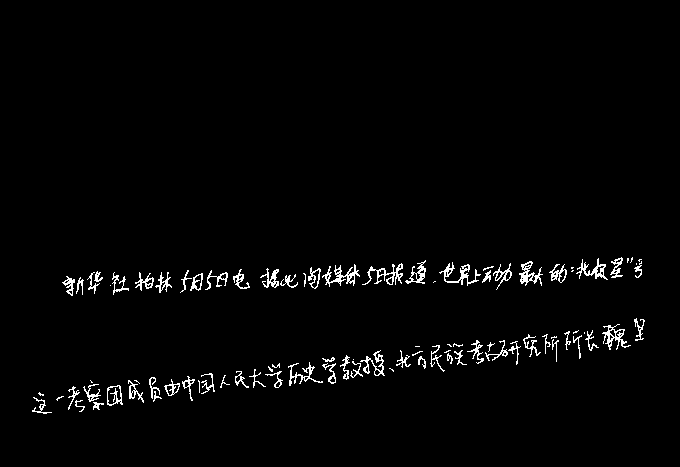 新华社柏林5月5日电 据此间媒体5日报道.世界上动力最大的“北极星”号
这一考察团成员由中国人民大学历史学教授、北方民族考古研究所所长魏坚